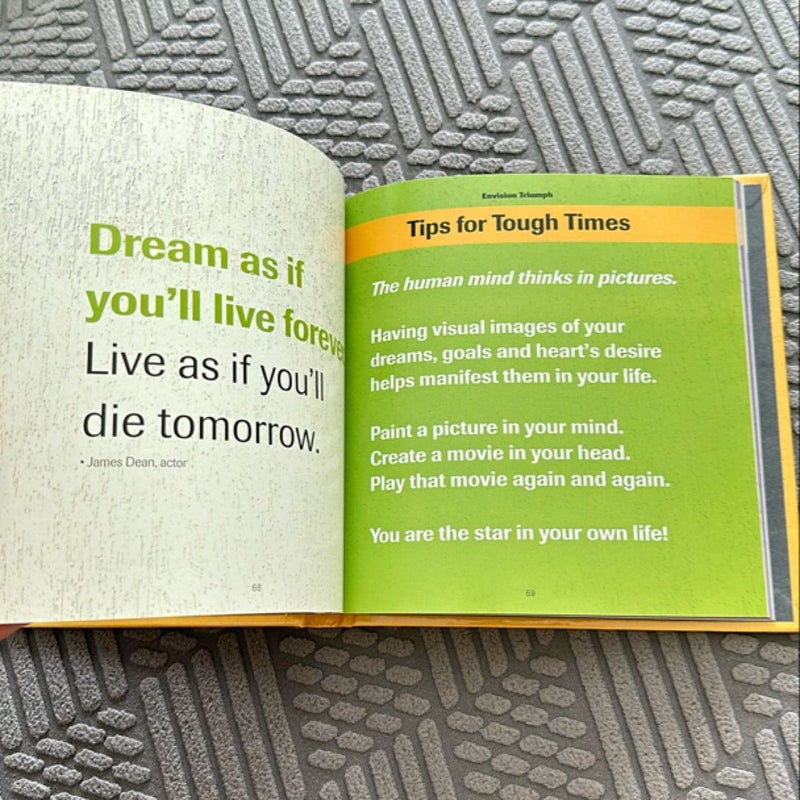 Dream as if
you'll live foreve
Live as if you'll
die tomorrow.
• James Dean, actor
68
Envision Triumph
Tips for Tough Times
The human mind thinks in pictures.
Having visual images of your
dreams, goals and heart's desire
helps manifest them in your life.
Paint a picture in your mind.
Create a movie in your head.
Play that movie again and again.
You are the star in your own life!
69